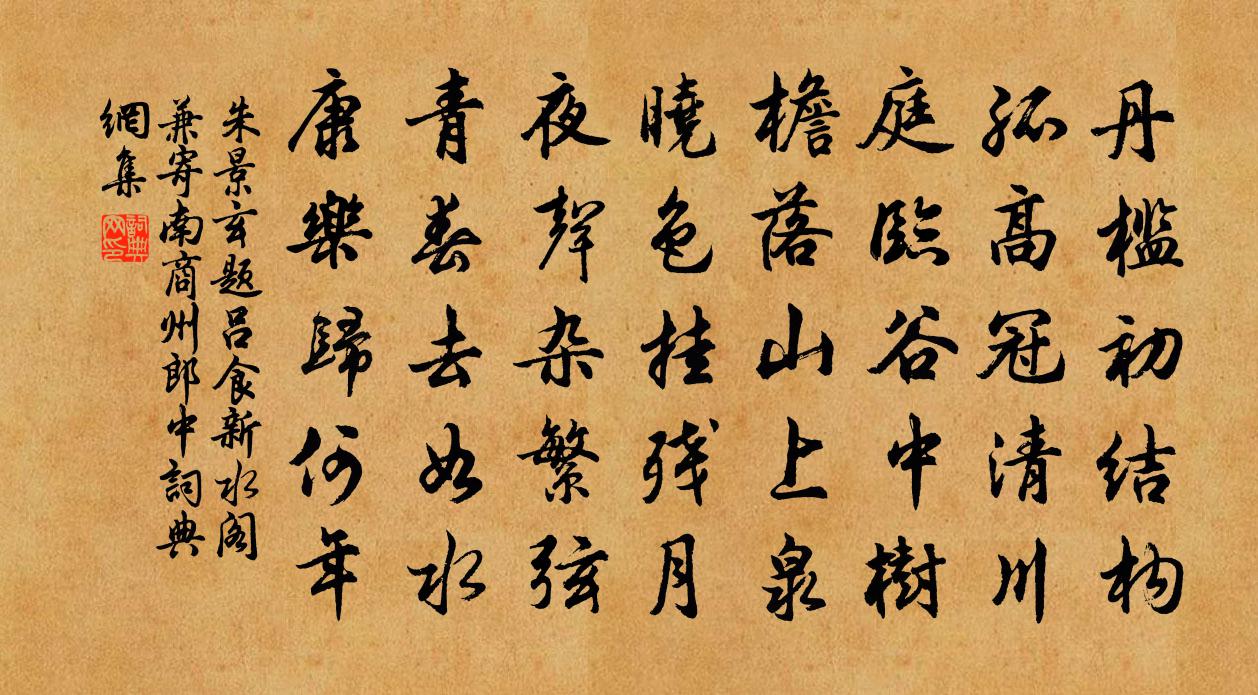 丹槛初结构
孤高冠清川
庭臨谷中樹
檐落山上泉
曉色挂残月
夜聲杂繁弦
青春去如水
康樂歸何年
朱景玄题吕食新水阁
兼寄南商州郎中詞典
網集
詞典网印